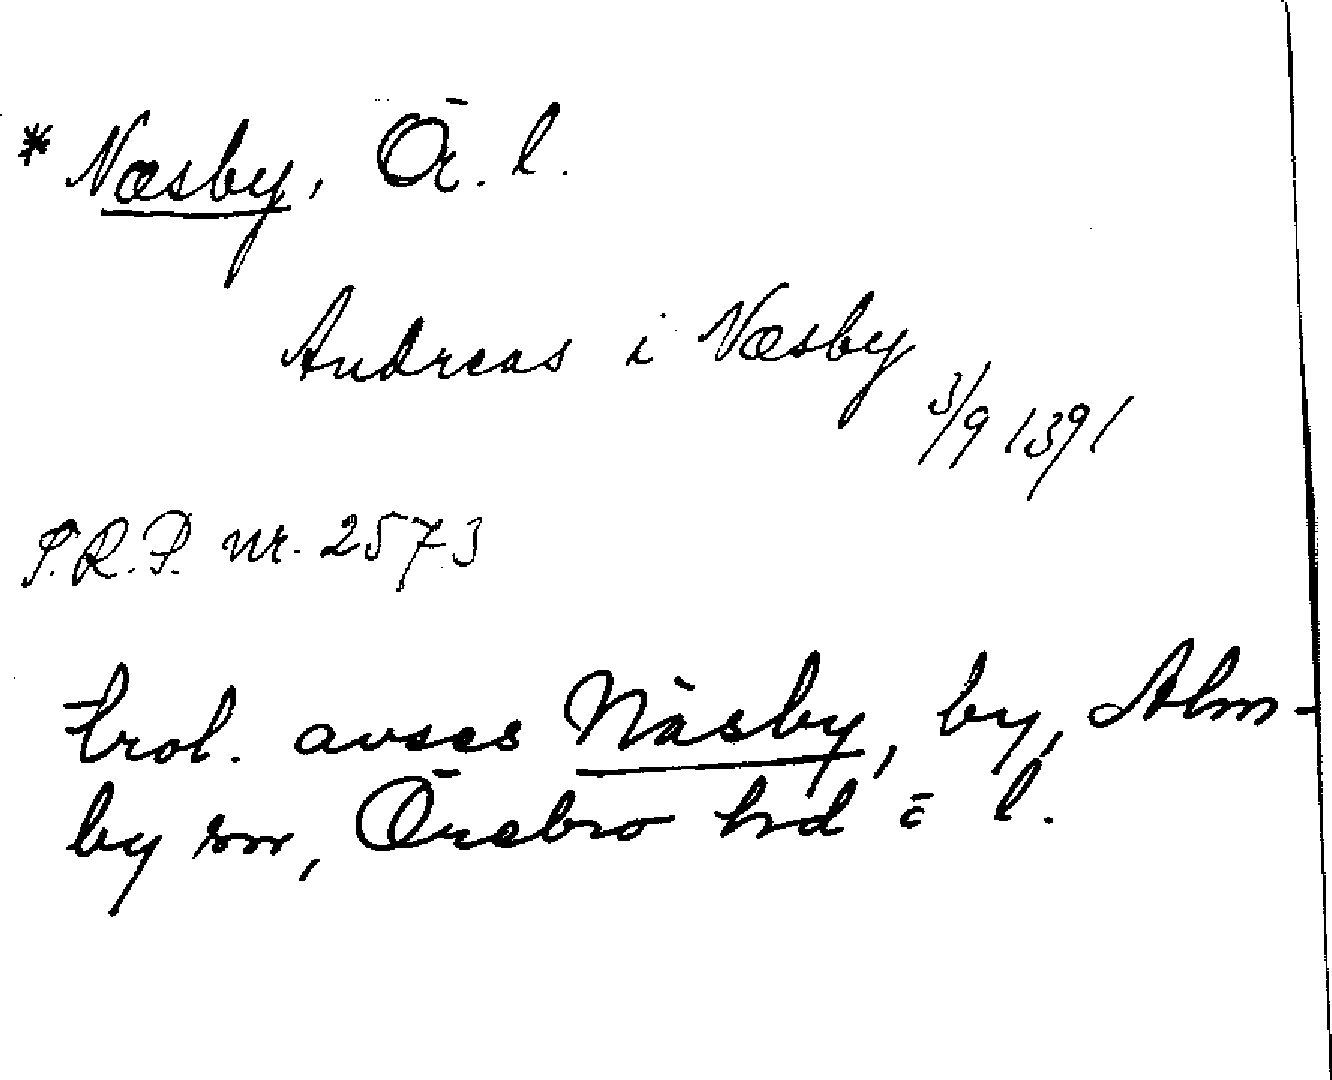 * Næsby, Ör. l.
Andreas i Næsby
3/9 1391
S.R.P. nr. 2573
trol. avses Näsby, by, Alm-
by sn, Örebro hd o l.